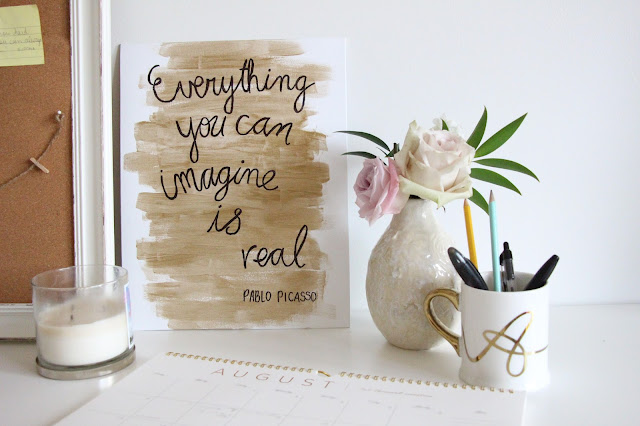 Everything
you can
imagine
is
real
PABLO PICASSO
AUGUST